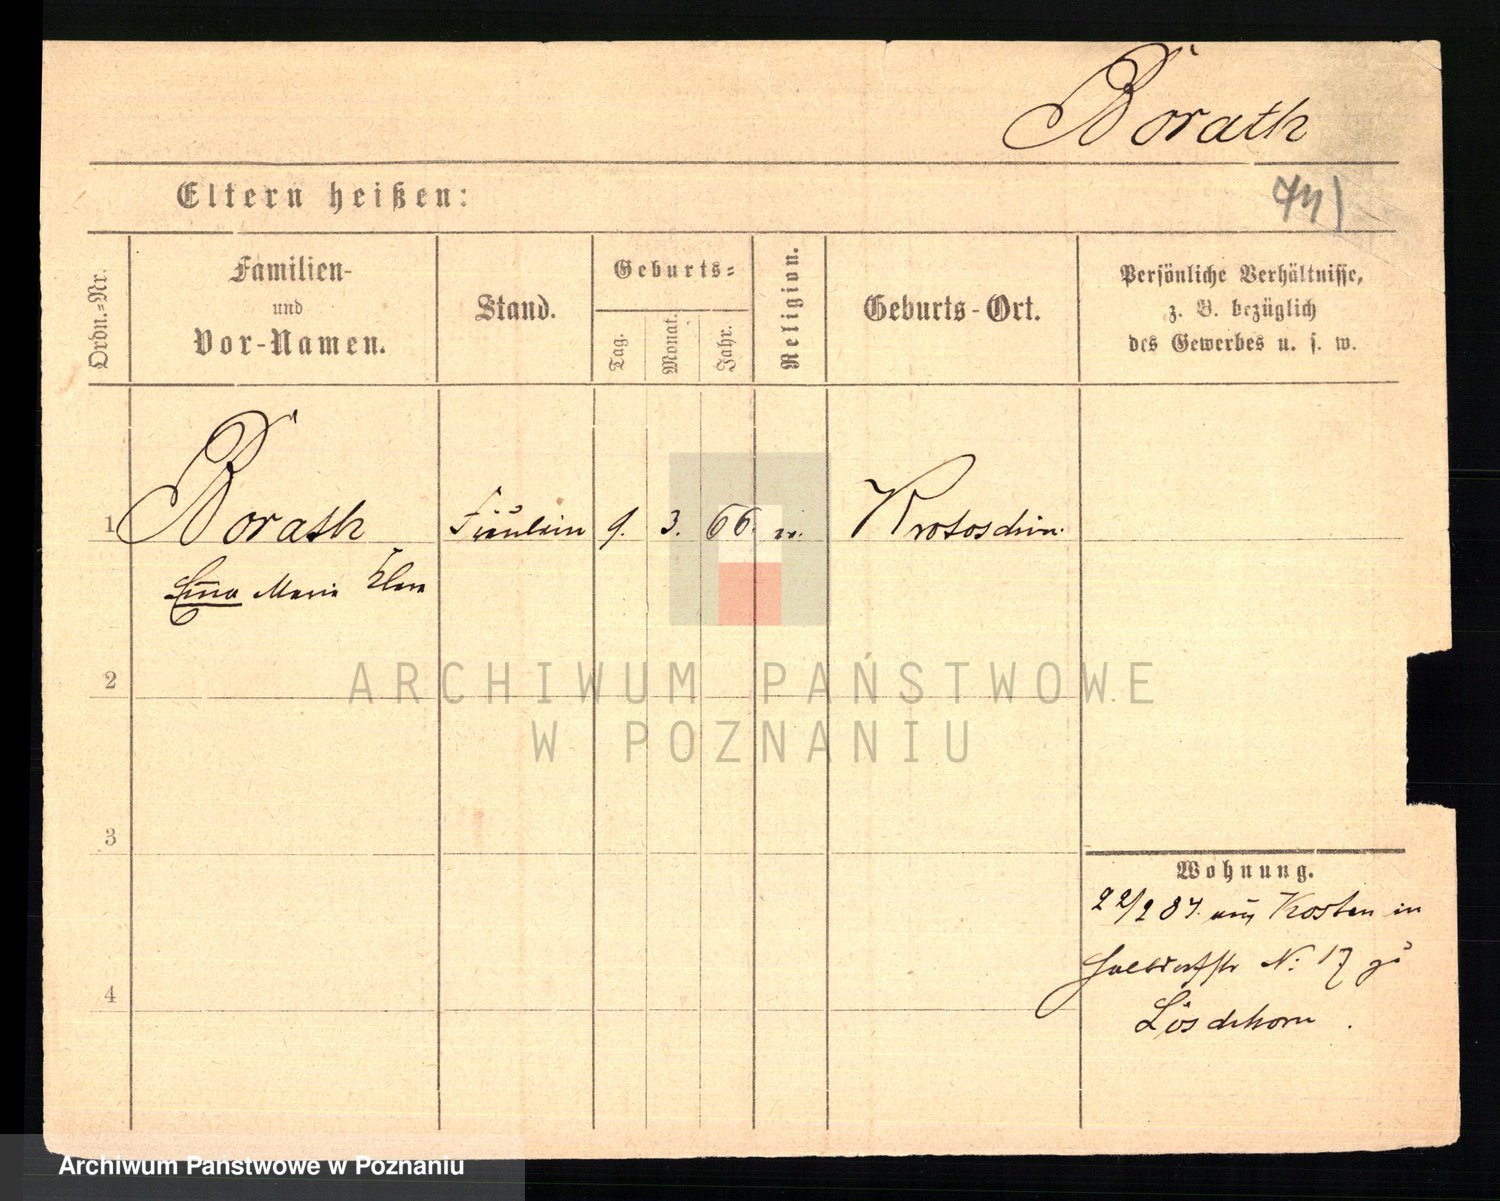 Borath
Eltern heißen:
Ordn.-Nr.
Familien-
und
Vor-Namen.
Stand.
Geburts-
Tag.
Monat.
Jahr.
Religion.
Geburts-Ort.
Persönliche Verhältnisse,
z. B. bezüglich
des Gewerbes u. s. w.
1
Borath
Fräulein
9.
3.
66.
Krotoschin.
Marie
2
ARCHIWUM PAŃSTWOWE
W POZNANIU
3
Wohnung.
22/2 87. aus Kosten in
No. 17 zu
4
Löschhorn.
Archiwum Państwowe w Poznaniu